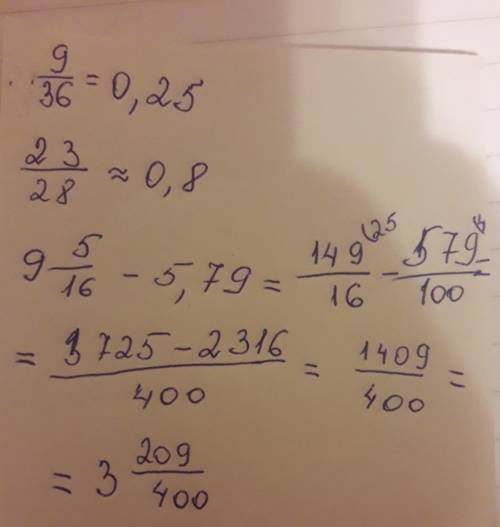 9/36 = 0,25
23/28 ≈ 0,8
9 5/16 - 5,79 = 149/16 (25 - 579/100 (4
= 3725 - 2316/400 = 1409/400 =
= 3 209/400